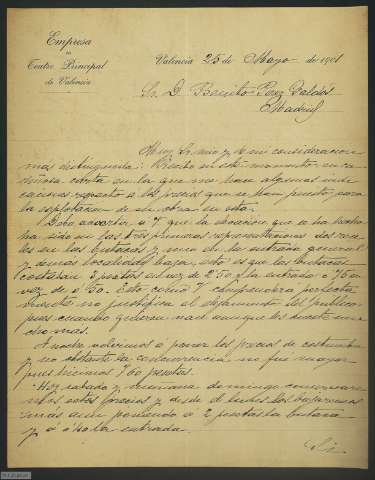 Empresa
del
Teatro Principal
de Valencia
Valencia 25 de Mayo de 1901
Sr. D. Benito Perez Galdos
Madrid
Muy Sr. mio y de mi consideracion
mas distinguida: Recibo en este momento su ca-
riñosa carta en la que me hace algunas indi-
caciones respecto a los precios que se han puesto para
la explotacion de su obra en esta.
Debo decirle a V. que la elevacion que se ha hecho
ha sido en las tres primeras representaciones dos rea-
les en las butacas y uno en la entrada general
y demas localidades bajas, esto es que las butacas
costaban 3 pesetas en vez de 2'50 y la entrada 0'75 en
vez de 0'50. Esto como V. comprenderá perfecta-
mente no justifica el alejamiento del publico
pues cuando quieren van aunque les cueste mu-
cho mas.
Anoche volvimos a poner los precios de costumbre
y no obstante la concurrencia no fue mayor
pues hicimos 760 pesetas.
Hoy sabado y mañana domingo conservare-
mos estos precios y desde el lunes los bajaremos
mas aun poniendo a 2 pesetas la butaca
y a 0'40 la entrada.
Si